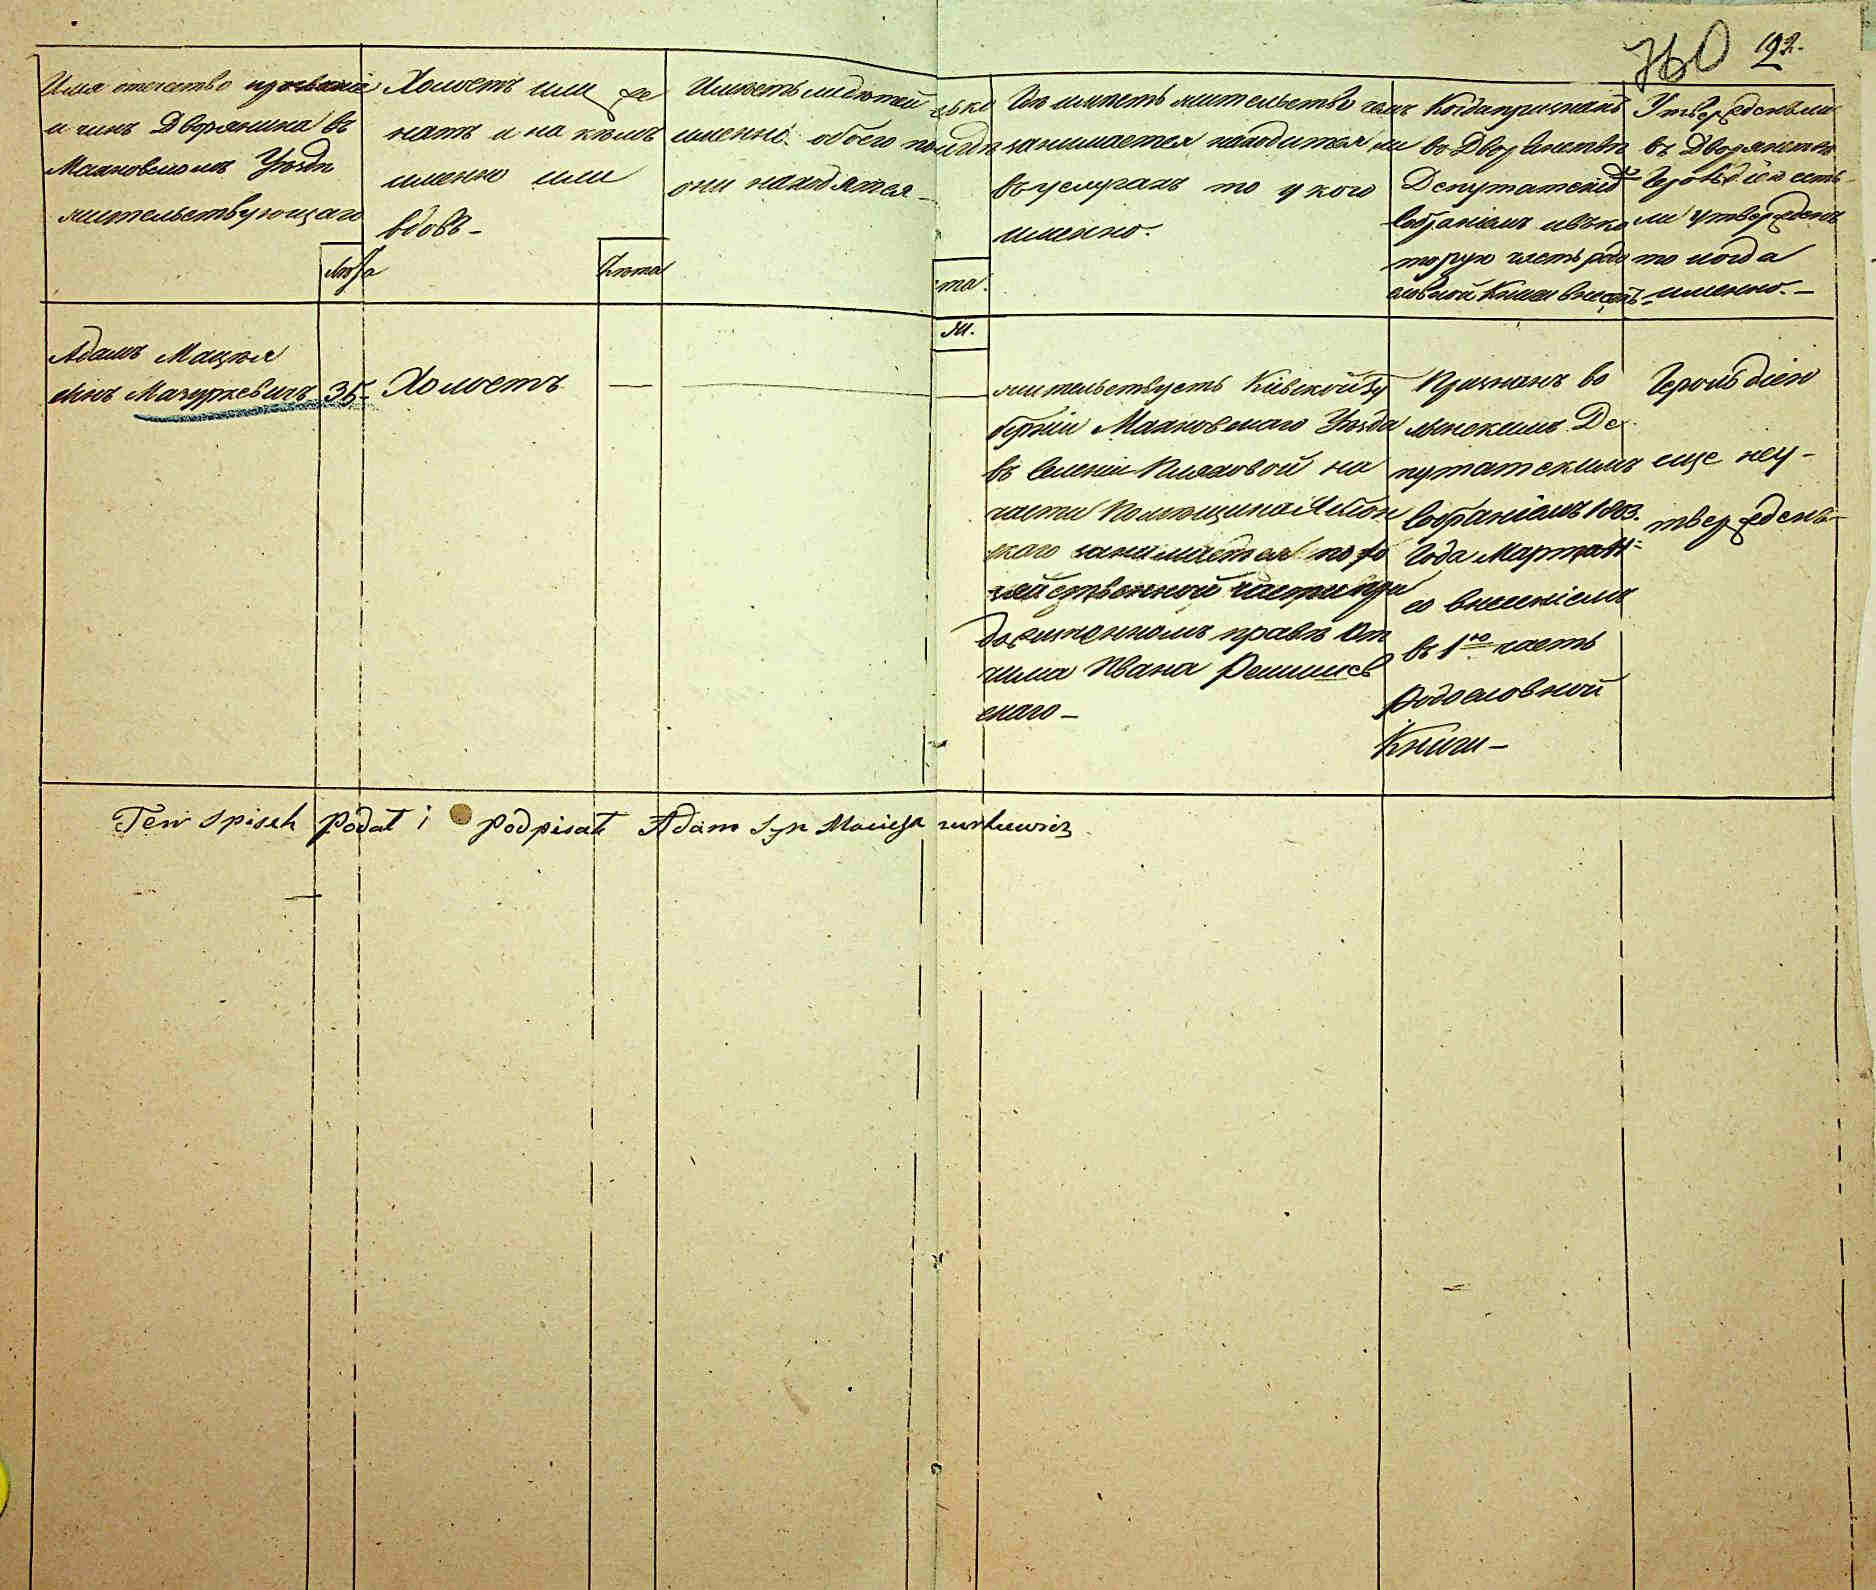 192.
Имя отчество прозваніе
и чинъ Дворянина въ
Махновскомъ Уѣздѣ
жительствующаго
Лѣта
Холостъ или же
натъ и на комъ
именно или
вдовъ
Лѣта
Имѣетъ ли дѣтей
именно обоего пола и гдѣ
они находятся
Лѣта.
М.
Где имѣетъ жительство чемъ
занимается находится ли
въ услугахъ то у кого
именно.
Когда признанъ
во Дворянствѣ
Депутатскимъ
Собраніемъ и въ ко
торую часть родо
словной Книги внесенъ
Утвержденъ ли
въ Дворянствѣ
Герольдіею есть
ли утвержденъ
то когда
именно.
Адамъ Мацѣя
сынъ Мазуркевичъ
35
Холостъ
жительствуетъ Кіевской Гу
берніи Махновскаго Уѣзда
въ Селеніи на
части Помѣщика
скаго занимается по хо
зяйственной части при
правѣ От
чима Ивана
скаго
Признанъ во
лынскимъ Де
путатскимъ
Собраніемъ 1803.
Года Марта
со внесеніемъ
въ 1ю часть
Родословной
Книги
Герольдіею
еще неу-
твержденъ
Ten Spisek Podał i podpisał Adam Syn Macieja zurkiewicz